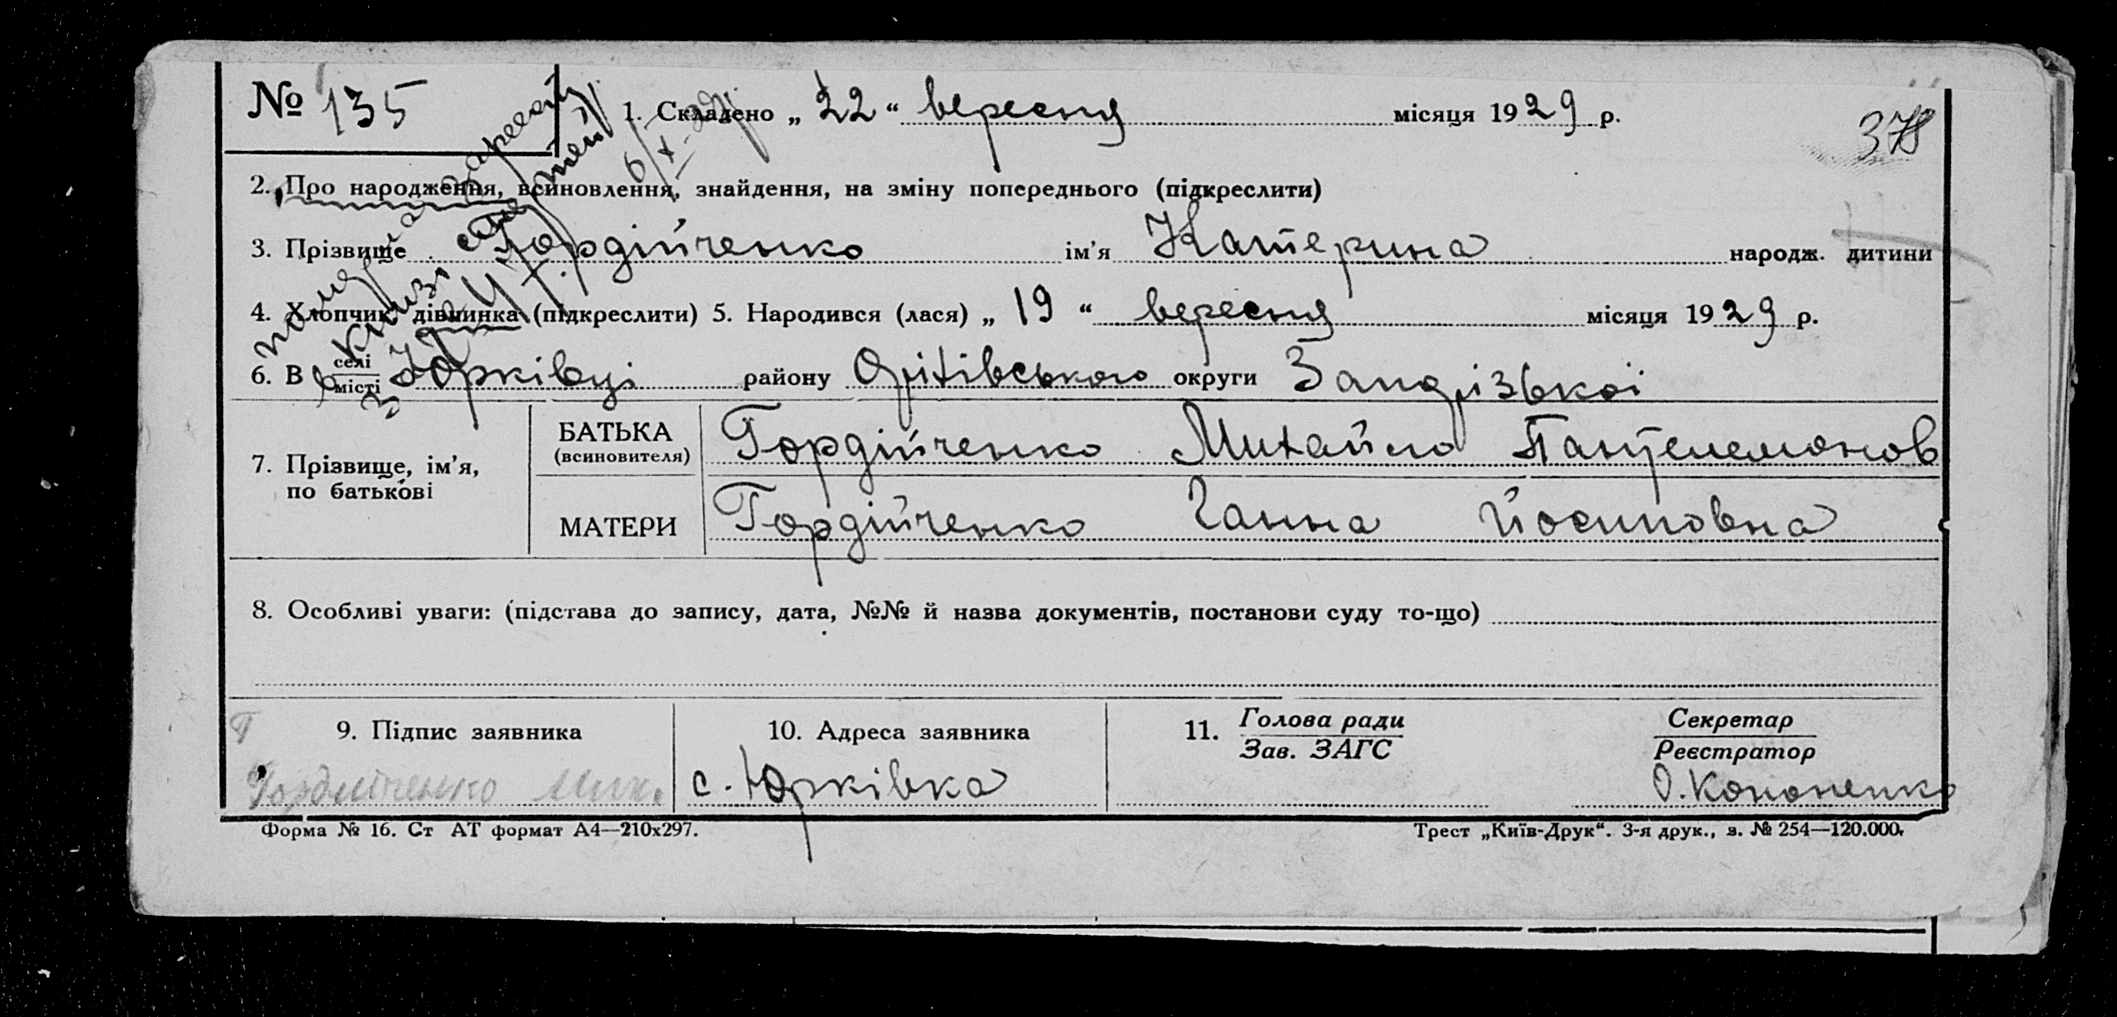 № 135
1. Складено „ 22 “ вересня місяця 1929 р.
378
2. Про народження, всиновлення, знайдення, на зміну попереднього (підкреслити)
3. Прізвище Гордійченко ім’я Катерина народж. дитини
4. Хлопчик, дівчинка (підкреслити) 5. Народився (лася) „ 19 “ вересня місяця 1929 р.
6. В селі/місті Юрківці району Оріхівського округи Запорізької
7. Прізвище, ім’я, по батькові
БАТЬКА (всиновителя) Гордійченко Михайло Пантелемонов
МАТЕРИ Гордійченко Ганна Йосиповна
8. Особливі уваги: (підстава до запису, дата, №№ й назва документів, постанови суду то-що)
9. Підпис заявника
Гордийченко Мих.
10. Адреса заявника
с. Юрківка
11. Голова ради
Зав. ЗАГС
Секретар
Реєстратор
О. Кононенко
Форма № 16. Ст АТ формат А4—210х297.
Трест „Київ-Друк“. 3-я друк., з. № 254—120.000.